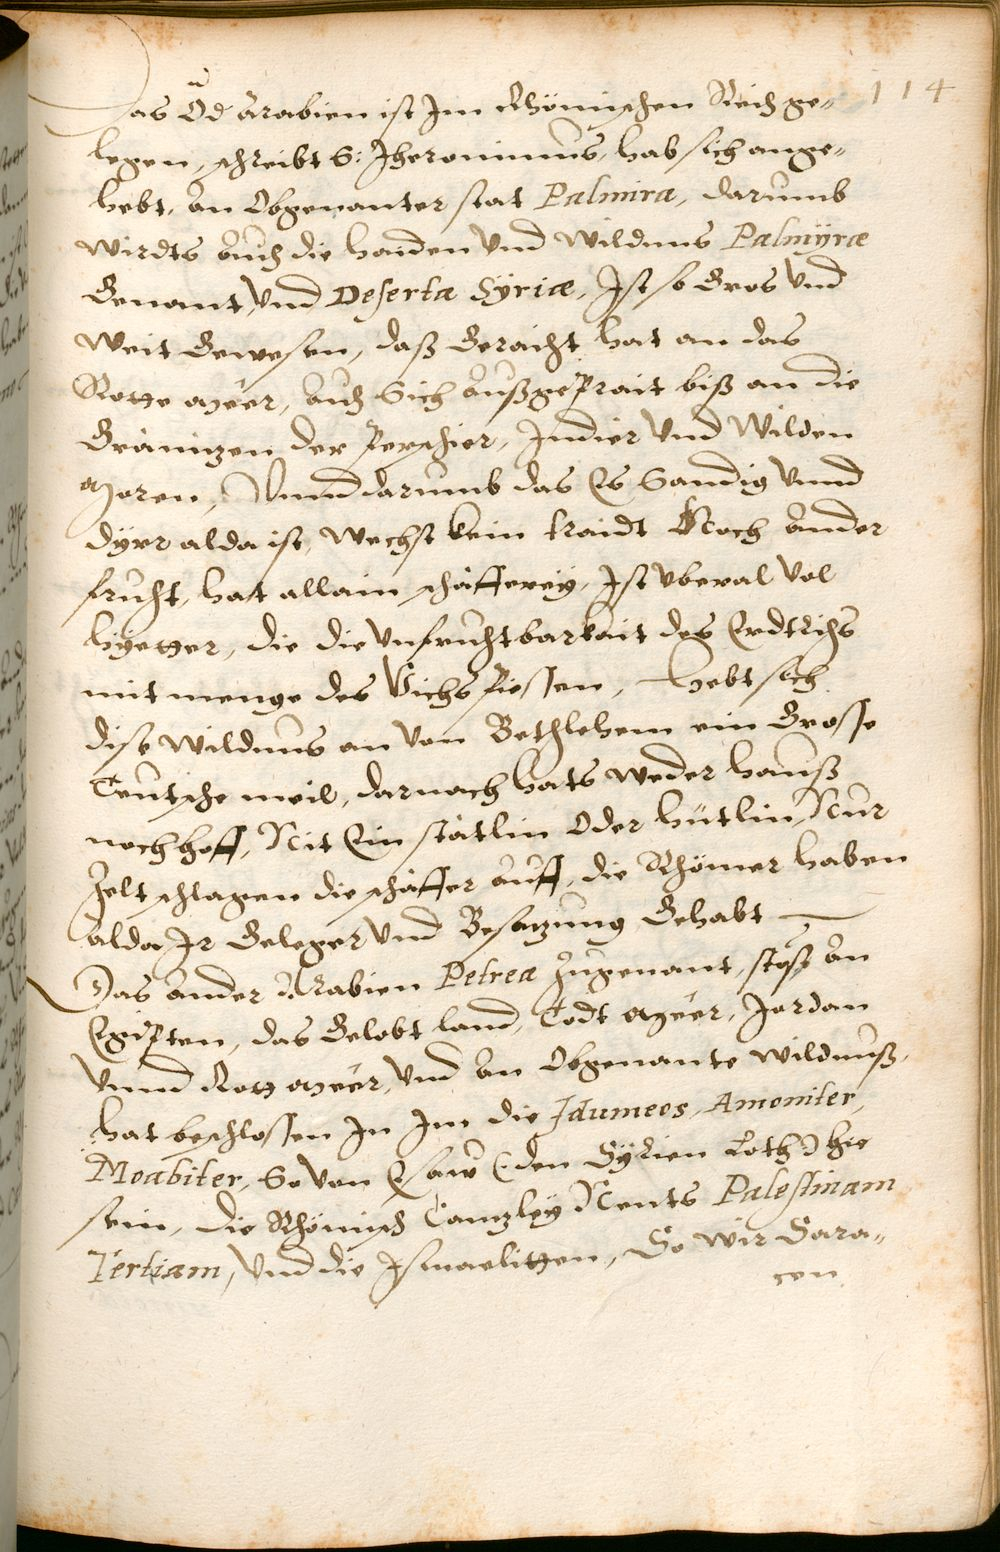 114
Das Öd Arabien ist Im Rhömischen Reich ge-
legen, schreibt S: Jheronimus, hab sich ange-
hebt, An Obgenanter stat Palmira, darumb
wirdts Auch die haiden Vnd Wildnus Palmÿræ
Genant, Vnd Desertæ Sÿriæ, Ist so Gros Vnd
Weit Gewesen, daß Geraicht hat an das
Rotte Meer, Auch Sich Außgeprait biß an die
Gränitzen der Perschier, Indier Vnd Wilden
Moren, Vnnd darumb das Es Sandig Vnnd
dÿrr alda ist, Wechst kein traidt Noch Ander
frucht, hat allain schäffereÿ, Ist vberal Vol
hÿetter, die die Vnfruchtbarkait des Erdtrichs
mit menge des Vichs piessen, Hebt sich
dise Wildnus an Von Bethlehem ein Grosse
Teutsche meil, darnach hats weder hauß
noch hoff, Nit Ein stätlin Oder hütlin, Nur
Zelt schlagen die schäffer Auff, die Rhömer haben
alda Ir Geleger Vnd Besatzung Gehabt
Das Ander Arabien Petrea Zugenant, stost An
Egipten, das Gelobt land, Todt Meer, Jordan
Vnnd Rott Meer, Vnd An Obgenante Wildnuß,
hat beschlossen In Im die Idumeos, Amoniter,
Moabiter, So Von Esaw (den Sÿrien Loth) hie
sein, die Rhömisch Cantzleÿ Nents Palestinam
Tertiam, Vnd die Ismaelitten, So Wir Sara-
cen